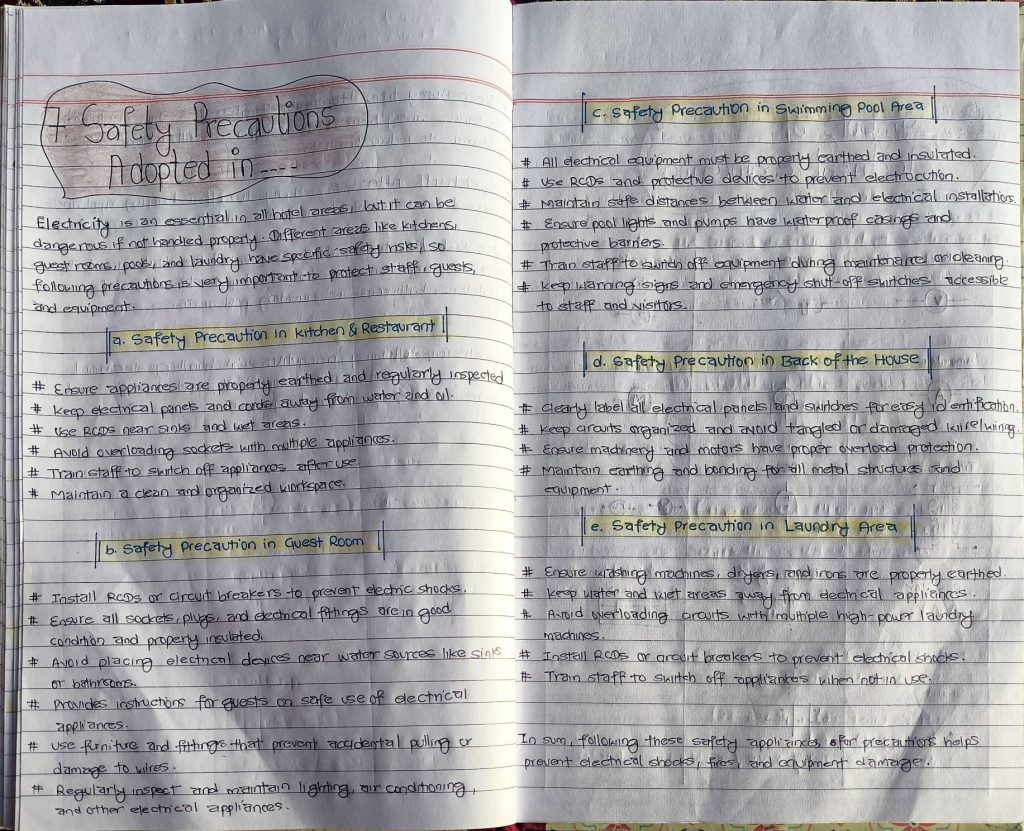 7 Safety Precautions
Adopted in ----
Electricity is an essential in all hotel areas, but it can be
dangerous if not handled properly. Different areas like kitchens,
guest rooms, pools, and laundry have specific safety risks, so
following precautions is very important to protect staff, guests,
and equipment.
a. Safety Precaution in Kitchen & Restaurant
# Ensure appliances are properly earthed and regularly inspected
# Keep electrical panels and cords away from water and oil.
# Use RCDs near sinks and wet areas.
# Avoid overloading sockets with multiple appliances.
# Train staff to switch off appliances after use.
# Maintain a clean and organized workspace.
b. Safety Precaution in Guest Room
# Install RCDs or circuit breakers to prevent electric shocks.
# Ensure all sockets, plugs, and electrical fittings are in good
condition and properly insulated.
# Avoid placing electrical devices near water sources like sinks
or bathrooms.
# Provides instructions for guests on safe use of electrical
appliances.
# Use furniture and fittings that prevent accidental pulling or
damage to wires.
# Regularly inspect and maintain lighting, air conditioning,
and other electrical appliances.
c. Safety Precaution in Swimming Pool Area
# All electrical equipment must be properly earthed and insulated.
# Use RCDs and protective devices to prevent electrocution.
# Maintain safe distances between water and electrical installations.
# Ensure pool lights and pumps have waterproof casings and
protective barriers.
# Train staff to switch off equipment during maintenance or cleaning.
# Keep warning signs and emergency shut-off switches accessible
to staff and visitors.
d. Safety Precaution in Back of the House
# Clearly label all electrical panels and switches for easy identification.
# Keep circuits organized and avoid tangled or damaged
# Ensure machinery and motors have proper overload protection.
# Maintain earthing and bonding for all metal structures and
equipment.
e. Safety Precaution in Laundry Area
# Ensure washing machines, dryers, and irons are properly earthed.
# Keep water and wet areas away from electrical appliances.
# Avoid overloading circuits with multiple high-power laundry
machines.
# Install RCDs or circuit breakers to prevent electrical shocks.
# Train staff to switch off appliances when not in use.
In sum, following these safety appliances for precautions helps
prevent electrical shocks, fires, and equipment damage.